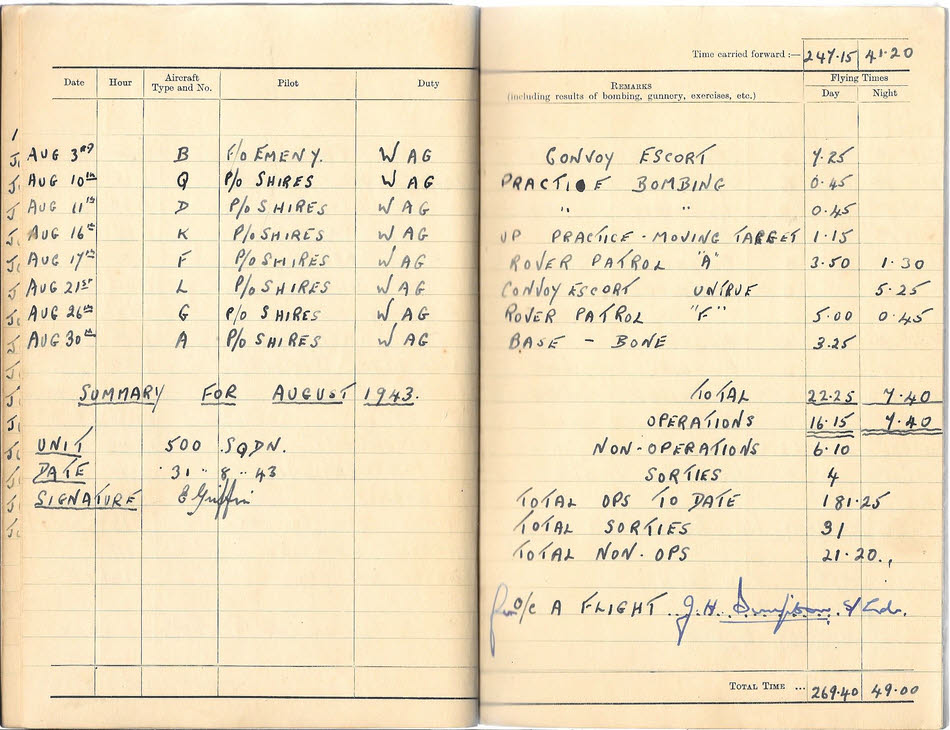 Time carried forward :— 247.15 41.20
Date Hour Aircraft Type and No. Pilot Duty
Remarks (including results of bombing, gunnery, exercises, etc.) Flying Times Day Night
AUG 3RD B F/O EMENY. W AG CONVOY ESCORT 7.25
AUG 10th Q P/O SHIRES W AG PRACTICE BOMBING 0.45
AUG 11th D P/O SHIRES W AG " " 0.45
AUG 16th K P/O SHIRES W AG UP PRACTICE - MOVING TARGET 1.15
AUG 17th F P/O SHIRES W AG ROVER PATROL "A" 3.50 1.30
AUG 21st L P/O SHIRES W AG CONVOY ESCORT UNIQUE 5.25
AUG 26th G P/O SHIRES W AG ROVER PATROL "F" 5.00 0.45
AUG 30th A P/O SHIRES W AG BASE - BONE 3.25
SUMMARY FOR AUGUST 1943. TOTAL 22.25 7.40
OPERATIONS 16.15 7.40
UNIT 500 SQDN. NON-OPERATIONS 6.10
DATE 31 .. 8 .. 43 SORTIES 4
SIGNATURE E Griffin TOTAL OPS TO DATE 181.25
TOTAL SORTIES 31
TOTAL NON-OPS 21.20.
O/C A FLIGHT J.H. Simpson
Total Time ... 269.40 49.00